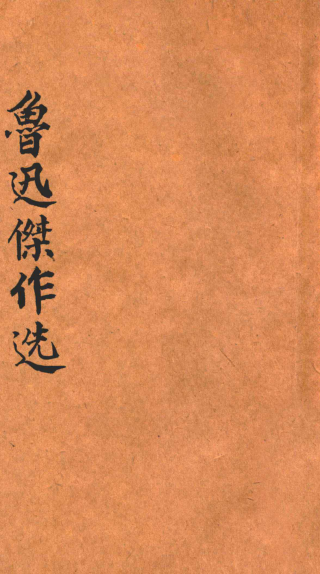 魯迅傑作选